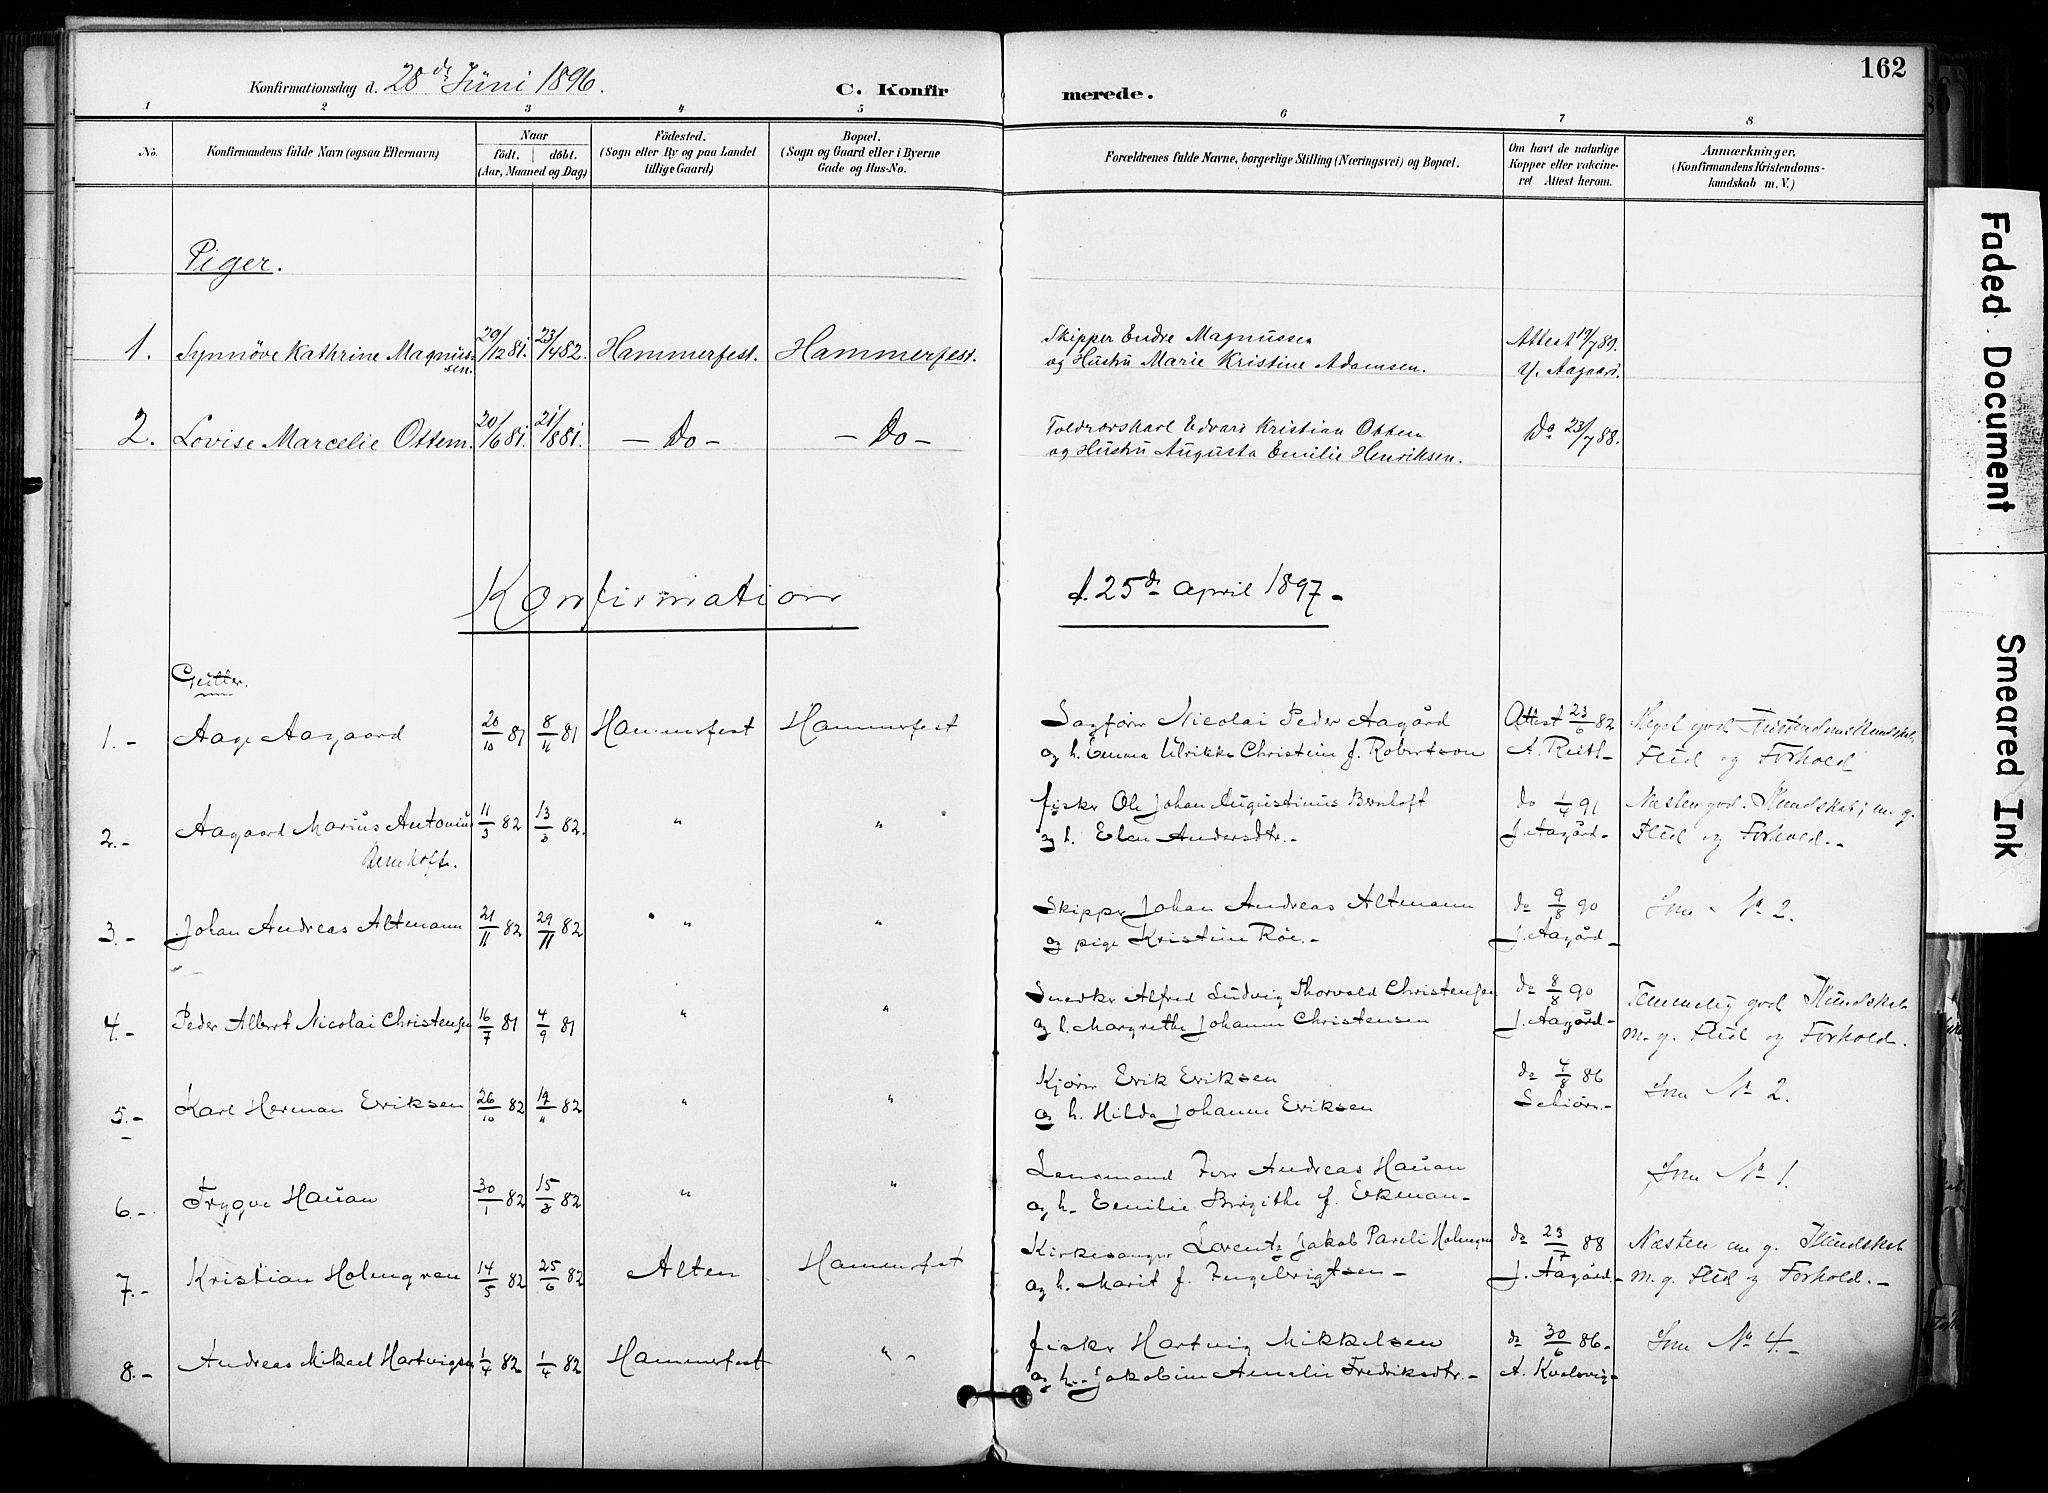 162
Konfirmationsdag d. 28de Juni 1896.
C. Konfirmerede.
1 2 3 4 5 6 7 8
No.
Konfirmandens fulde Navn (ogsaa Efternavn)
Naar
födt. döbt.
(Aar, Maaned og Dag)
Födested.
(Sogn eller By og paa Landet
tillige Gaard)
Bopæl.
(Sogn og Gaard eller i Byerne
Gade og Hus-No.
Forældrenes fulde Navne, borgerlige Stilling (Næringsvei) og Bopæl.
Om havt de naturlige
Kopper eller vakcine-
ret Attest herom.
Anmærkninger,
(Konfirmandens Kristendoms-
kundskab m. V.)
Piger.
1. Synnöve Kathrine Magnus- 29/12 81. 23/4 82. Hammerfest. Hammerfest. Skipper Endre Magnussen Attest 19/7 89.
sen. og Hustru Marie Kristine Adamsen. J. Aagaard.
2. Lovise Marcelie Ottem. 20/6 81. 21/8 81. — Do — — Do — Toldrorskarl Edvard Kristian Ottem Do 23/7 88.
og Hustru Augusta Emilie Henriksen.
Konfirmation d. 25de April 1897 —
Gutter.
1. - Aage Aagaard 20/10 81 8/11 81 Hammerfest Hammerfest Sagförer Nicolai Peder Aagård Attest 23/6 82 Meget god Kristendomskundskab,
og h. Emma Ulrikke Christein f. Robertson Flid og Forhold
2. - Aagaard Marius Antonius 11/3 82 13/3 82. " " fisker Ole Johan Augustinus Bernhoft do 1/4 91 Næsten god Kundskab; m. g.
Bernhoft. og h. Elen Andersdtr. - J. Aagård - Flid og Forhold. -
3. - Johan Andreas Altmann 21/11 82 29/11 82 " " Skipper Johan Andreas Altmann do 9/8 90 Som No 2.
og pige Kristine Röe. - J. Aagård -
4. - Peder Albert Nicolai Christensen 16/7 81 4/9 81 " " Snedker Alfred Ludvig Thorvald Christensen do 8/8 90 Temmelig god Kundskab
og h. Margrethe Johanne Christensen J. Aagård - m. g. Flid og Forhold.
5. - Karl Herman Eriksen 26/10 82 19/11 82 " " Kjörer Erik Eriksen do 4/8 86 Som No 2.
og h. Hilda Johanne Eriksen
6. - Trygve Hauan 30/1 82 15/3 82 " " Lensmand Andreas Hauan Som No 1.
og h. Emilie Birgithe f. Eckman -
7. - Kristian Holmgren 14/5 82 25/6 82 Alten Hammerfest Kirkesanger Lorentz Jakob Pareli Holmgren do 23/7 88 Næsten m g. Kundskab
og h. Marit f. Ingebrigtsen - J. Aagård. - m. g. Flid og Forhold. -
8. - Andreas Mikael Hartvigsen 1/4 82 1/4 82 Hammerfest " fisker Hartvig Mikkelsen do 30/6 86 - Som No 4. -
og h. Jakobine Amalie Fredriksdtr. - A. Kvalsvig -
Faded Document
Smeared Ink